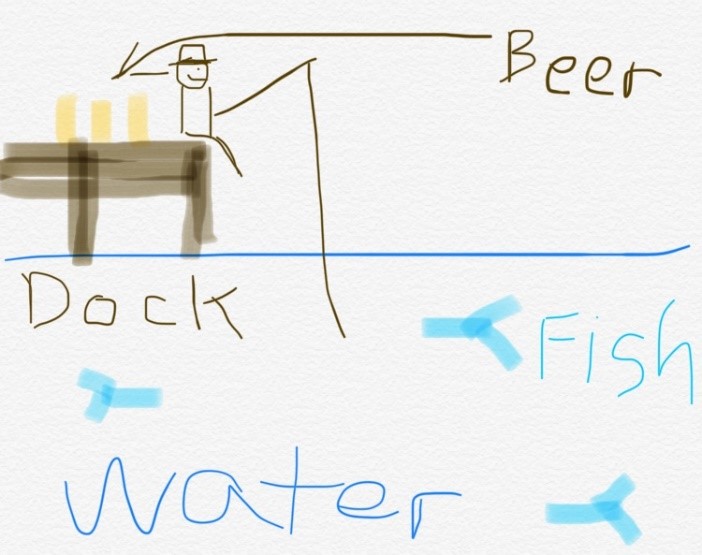 Beer
Dock
Fish
Water